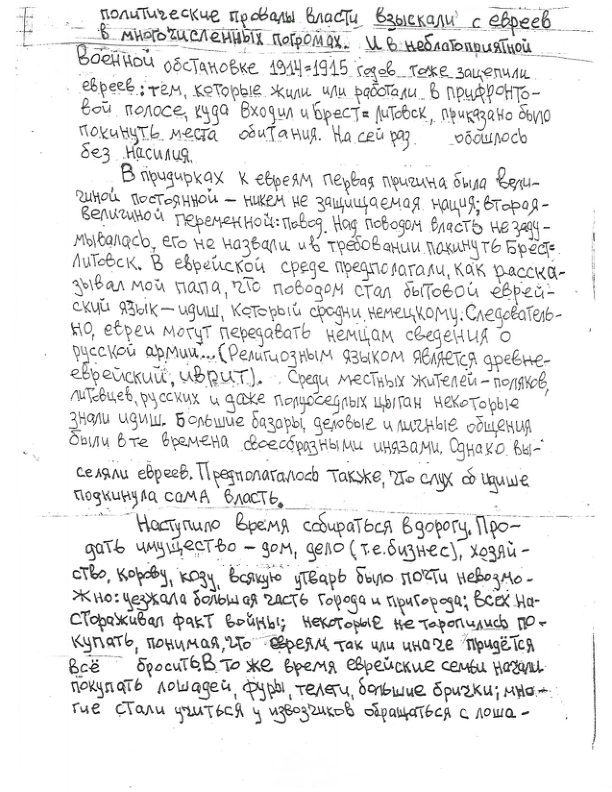 политические провалы власти взыскали с евреев
в многочисленных погромах. И в неблагоприятной
военной обстановке 1914=1915 годов тоже зацепили
евреев: тем, которые жили или работали в прифронто-
вой полосе, куда входил и Брест=Литовск, приказано было
покинуть места обитания. На сей раз обошлось
без насилия.
В придирках к евреям первая причина была вели-
чиной постоянной – никем не защищаемая нация; вторая-
величиной переменной: повод. Над поводом власть не заду-
мывалась, его не назвали и в требовании покинуть Брест=
Литовск. В еврейской среде предполагали, как расска-
зывал мой папа, что поводом стал бытовой еврей-
ский язык – идиш, который сродни немецкому. Следователь-
но, евреи могут передавать немцам сведения о
русской армии... (Религиозным языком является древне-
еврейский, иврит). Среди местных жителей – поляков,
литовцев, русских и даже полуоседлых цыган некоторые
знали идиш. Большие базары, деловые и личные общения
были в те времена своеобразными инязами. Однако вы-
селяли евреев. Предполагалось также, что слух об идише
подкинула сама власть.
Наступило время собираться в дорогу. Про-
дать имущество – дом, дело (т.е. бизнес), хозяй-
ство, корову, козу, всякую утварь было почти невозмо-
жно: уезжала большая часть города и пригорода; всех на-
стораживал факт войны; некоторые не торопились по-
купать, понимая, что евреям так или иначе придётся
всё бросить. В то же время еврейские семьи начали
покупать лошадей, фуры, телеги, большие брички; мно-
гие стали учиться у извозчиков обращаться с лоша-